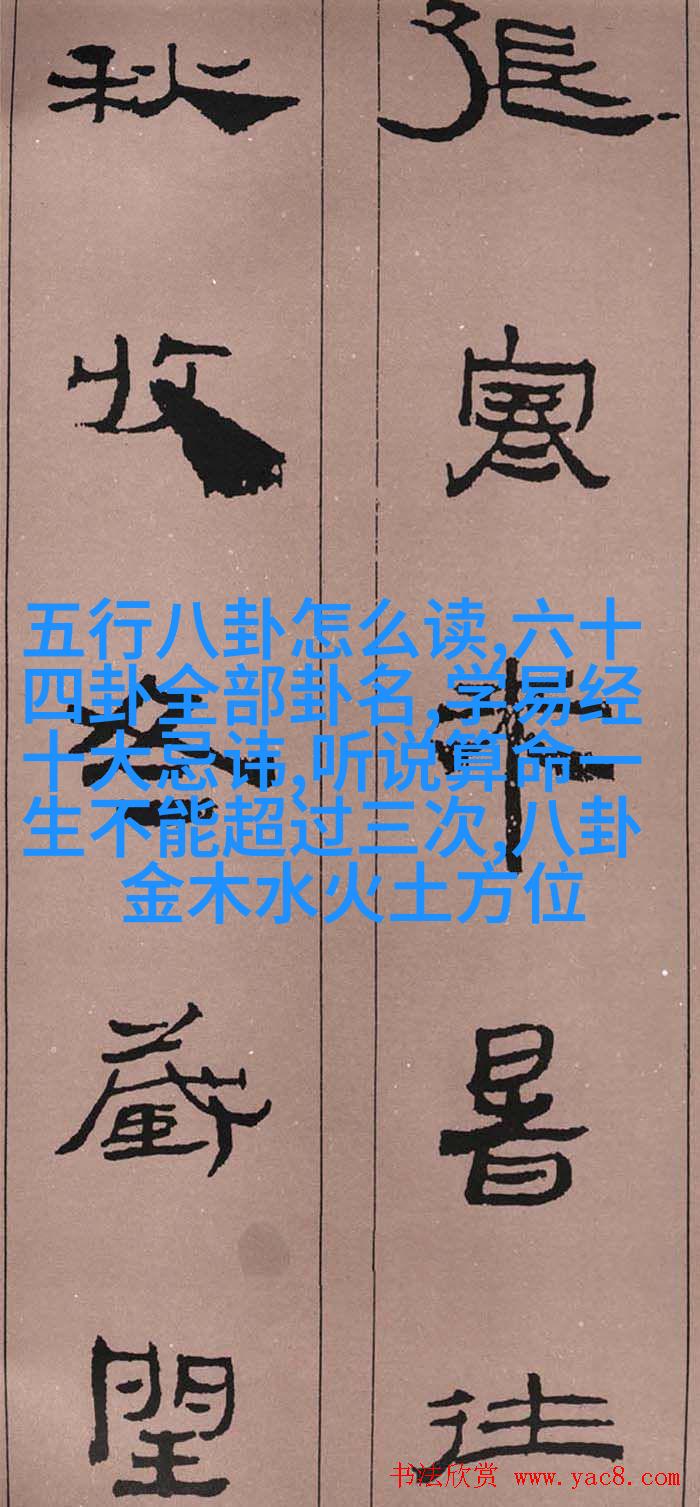 張寒來暑往
秋收冬藏閏
五行八卦怎么读,六十
四卦全部卦名,学易经
十大忌讳,听说算命一
生不能超过三次,八卦
金木水火土方位
书法欣赏 www.yac8.com